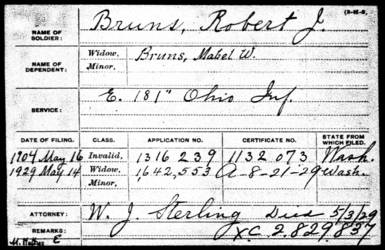 Bruns, Robert J.
(3-H-6.)
NAME OF SOLDIER:
NAME OF DEPENDENT:
Widow, Bruns, Mabel W.
Minor,
SERVICE: E. 181" Ohio Inf.
DATE OF FILING. CLASS. APPLICATION NO. CERTIFICATE NO. STATE FROM WHICH FILED.
1904 May 16 Invalid, 1316 239 1132 073 Wash.
1929 May 14 Widow, 1,642,553 A-8-21-29 Wash.
Minor,
ATTORNEY: W. J. Sterling Died 5/3/29
REMARKS: XC 2.829.837
E